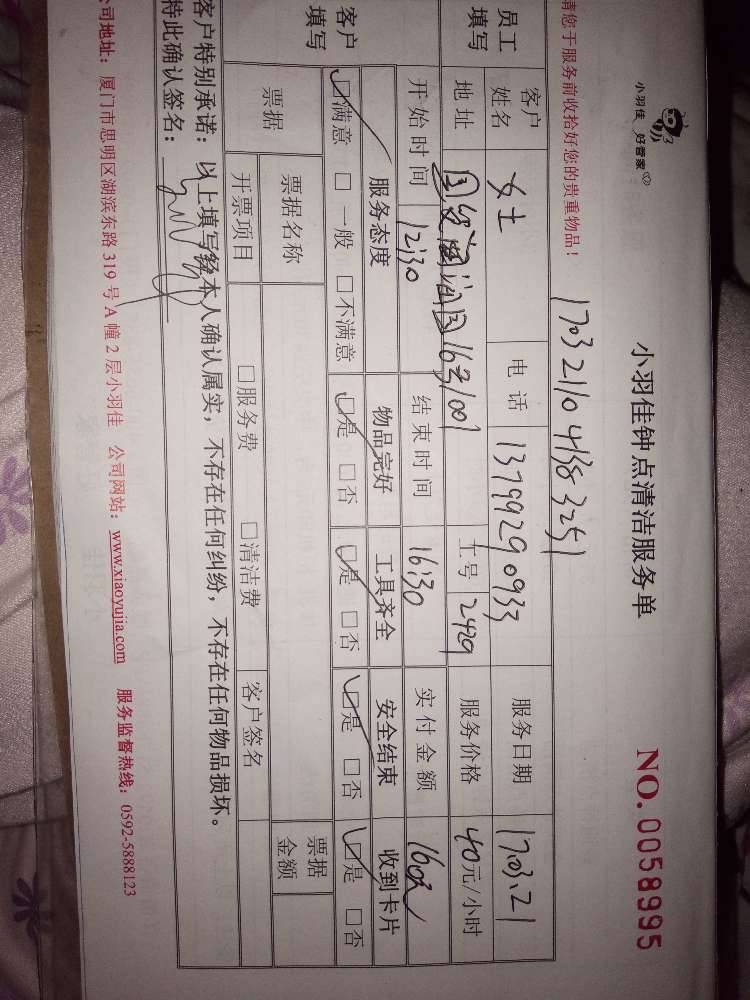 小羽佳 好管家
小羽佳钟点清洁服务单
NO. 0058995
请您于服务前收拾好您的贵重物品！
1703211041383251
员工填写
客户姓名 女士 电话 13799290933 服务日期 17.03.21
地址 16号1001 工号 2429 服务价格 40元/小时
开始时间 12:30 结束时间 16:30 实付金额 160元
客户填写
服务态度 物品完好 工具齐全 安全结束 收到卡片
☑满意 □一般 □不满意 ☑是 □否 ☑是 □否 ☑是 □否 ☑是 □否
票据
票据名称 票据金额
开票项目 □服务费 □清洁费 客户签名
客户特别承诺：以上填写经本人确认属实，不存在任何纠纷，不存在任何物品损坏。
特此确认签名：
公司地址：厦门市思明区湖滨东路319号A幢2层小羽佳 公司网站：www.xiaoyujia.com 服务监督热线：0592-5888123